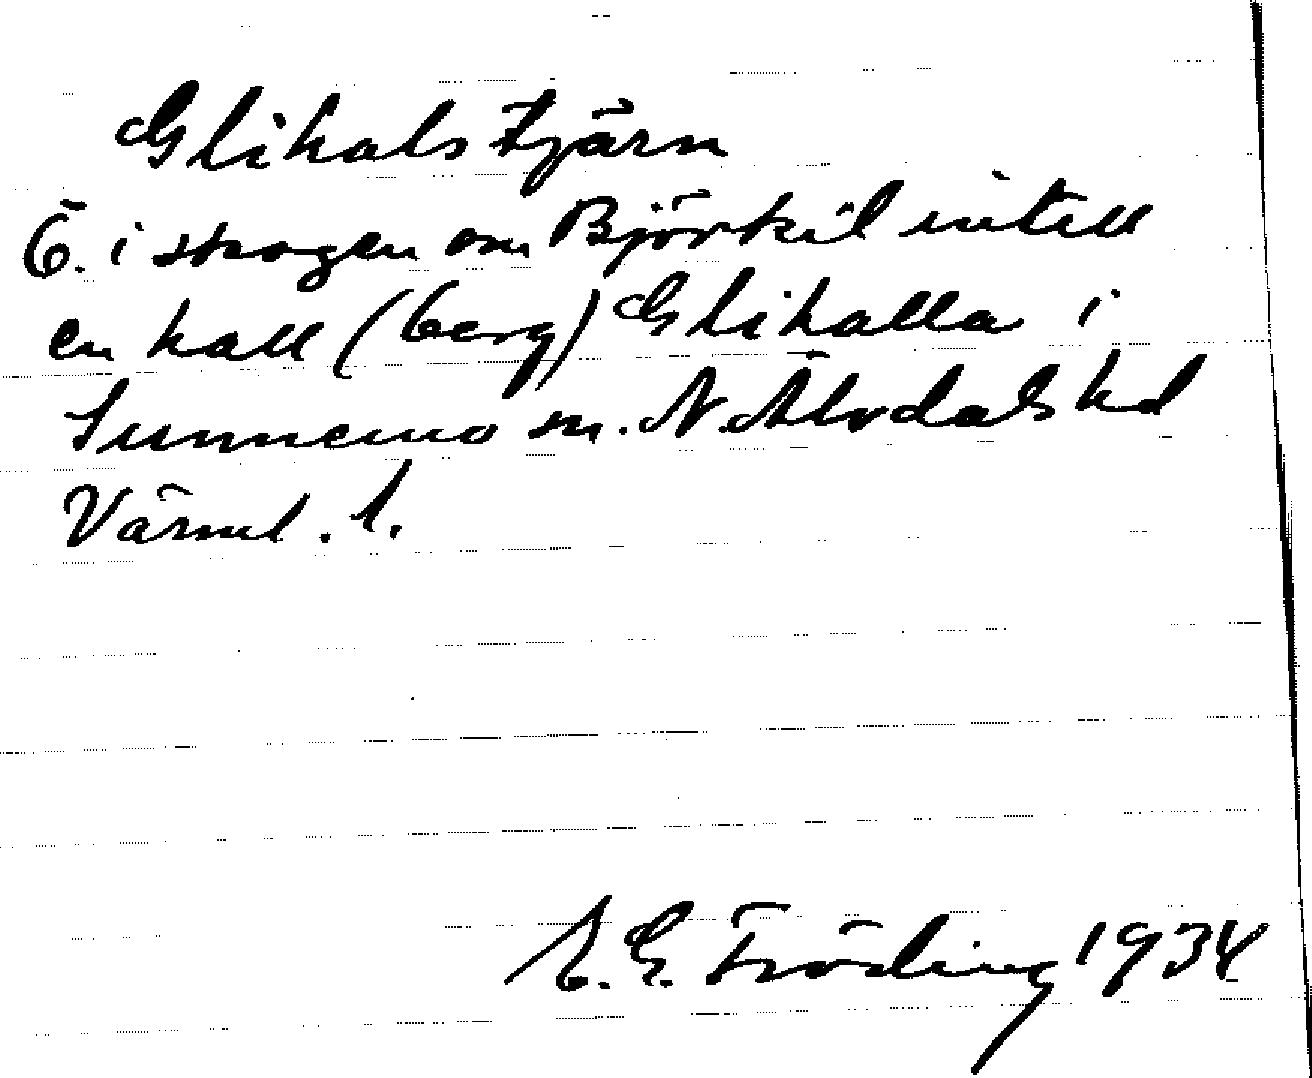 Glihalstjärn
Ö. i skogen om Björkil intill
en hall (berg) Glihalla i
Sunnemo sn. N. Älvdals hd
Värml. l.
E. G. Fröding 1934